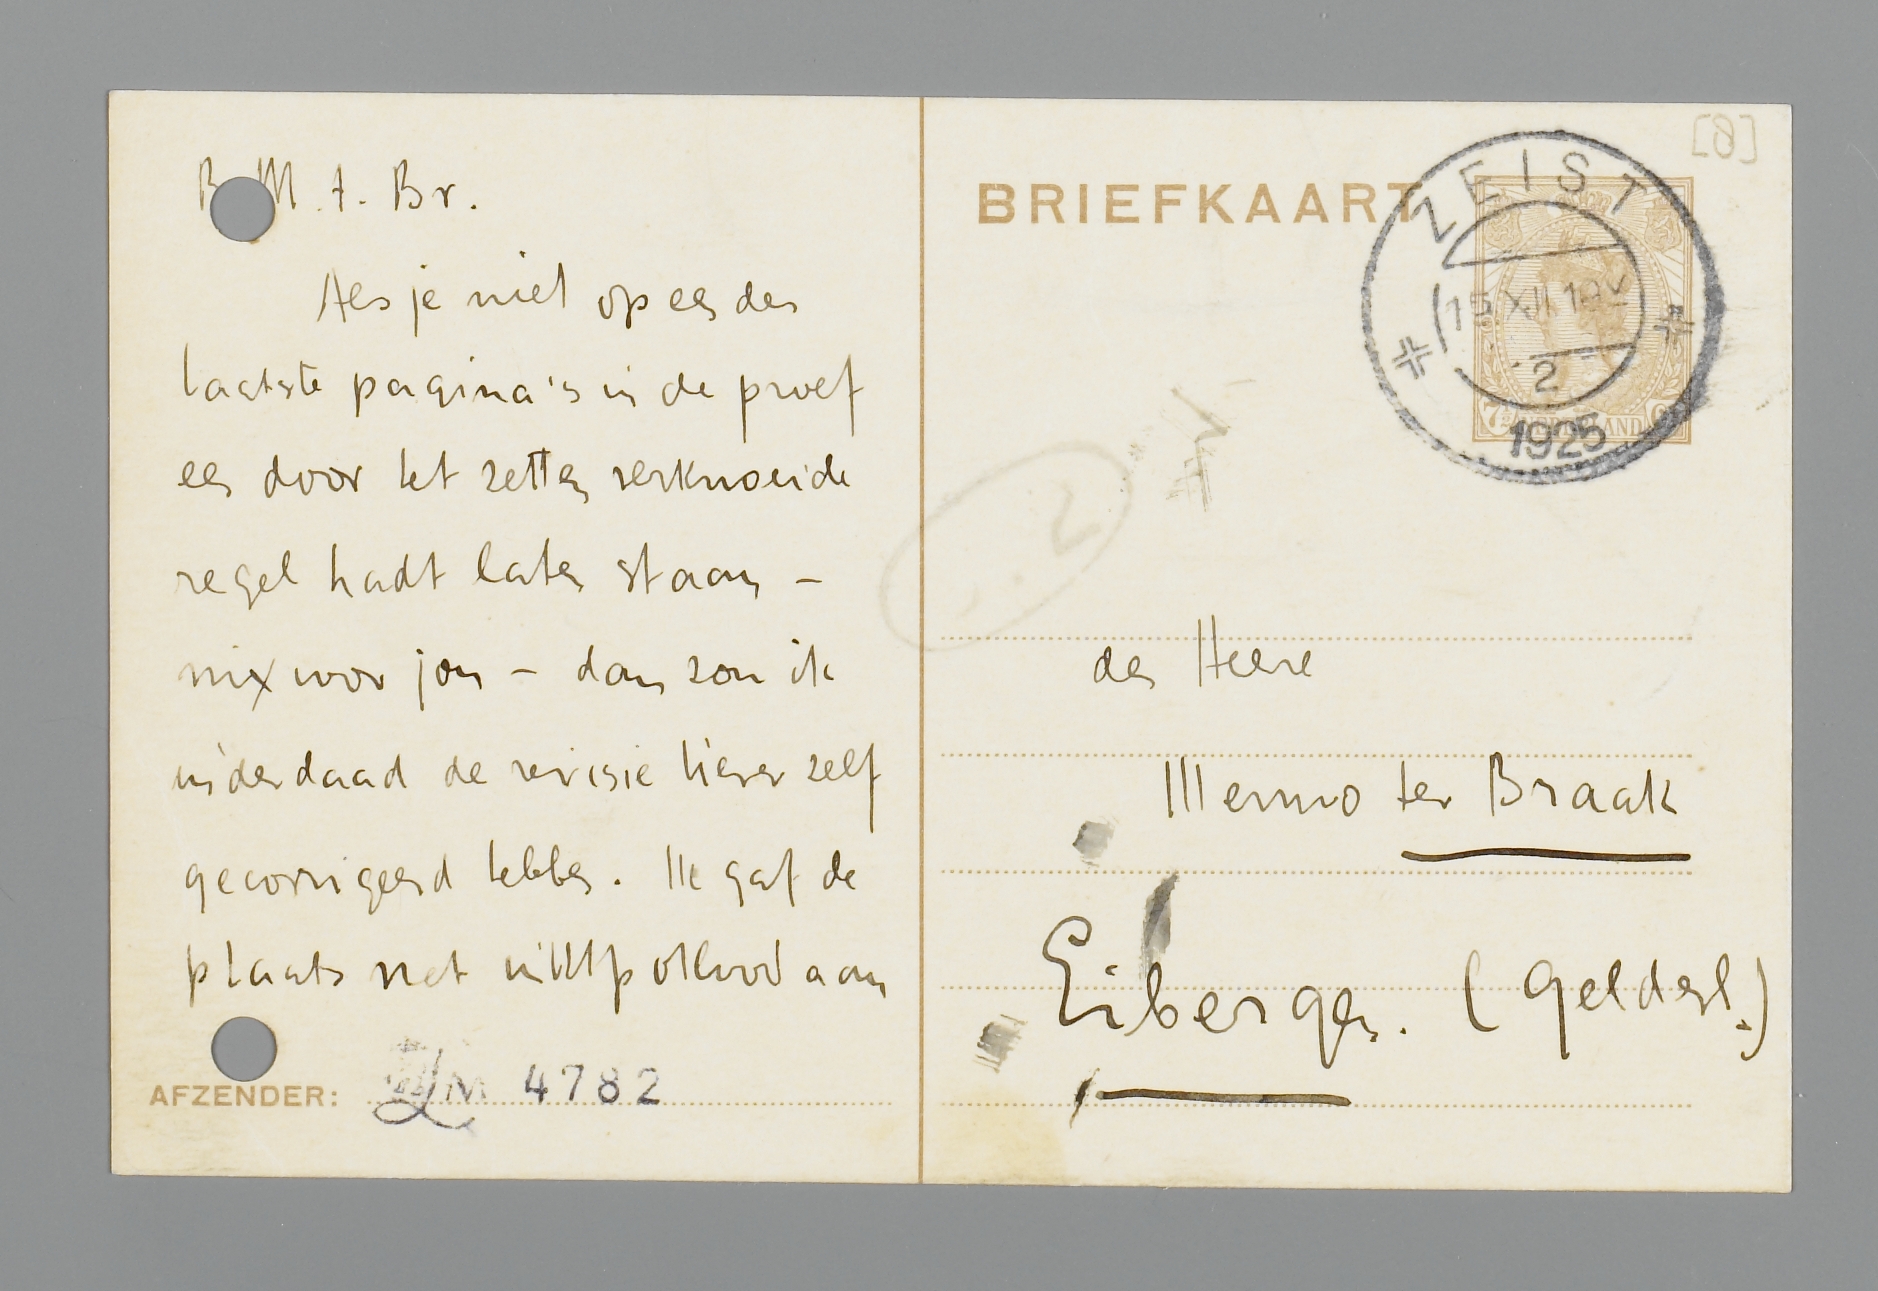 B M. t. Br.
Als je niet op een der
laatste pagina's in de proef
een door het zetten verknoeide
regel hadt laten staan -
nix voor jou - dan zou ik
inderdaad de revisie liever zelf
gecorrigeerd hebben. Ik gaf de
plaats met potlood aan
AFZENDER: LM 4782
[8]
BRIEFKAART
ZEIST
15 XII 10V
2
1925
7½ NEDERLAND
2
den Heere
Menno ter Braak
Eibergen. (Gelderl.)